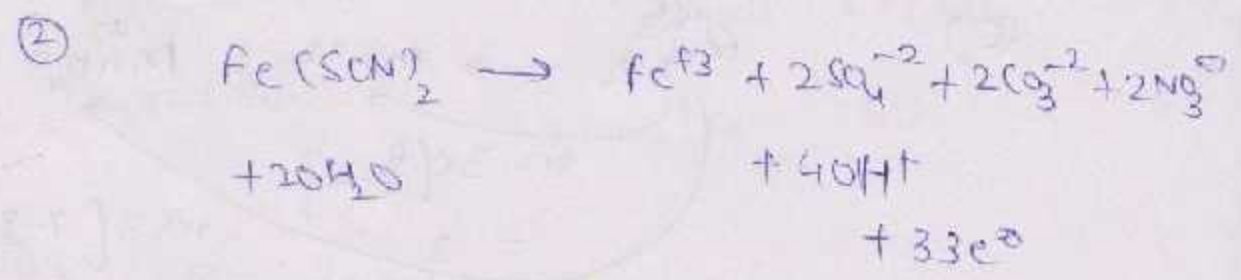 ② Fe(SCN)₂ → Fe⁺³ + 2SO₄⁻² + 2CO₃⁻² + 2NO₃⊖
+20H₂O + 40H⁺
+ 33e⊖